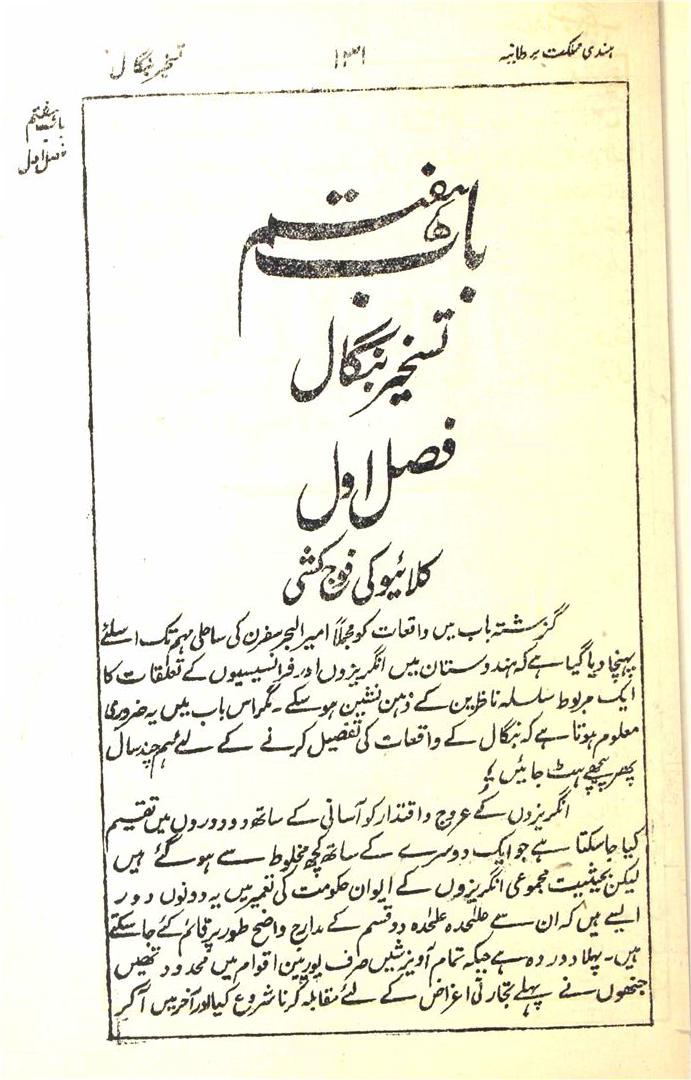 ہندی مملکت برطانیہ
۱۳۱
تسخیر بنگال
باب ہفتم
فصل اول
باب ہفتم
تسخیر بنگال
فصل اول
کلائیو کی فوج کشی
گزشتہ باب میں واقعات کو مجملاً امیر البحر سفرن کی ساحلی مہم تک اسلئے
پہنچا دیا گیا ہے کہ ہندوستان میں انگریزوں اور فرانسیسیوں کے تعلقات کا
ایک مربوط سلسلہ ناظرین کے ذہن نشین ہوسکے۔ مگر اس باب میں یہ ضروری
معلوم ہوتا ہے کہ بنگال کے واقعات کی تفصیل کرنے کے لئے ہم چند سال
پھر پیچھے ہٹ جائیں ؛
انگریزوں کے عروج و اقتدار کو آسانی کے ساتھ دو دوروں میں تقسیم
کیا جاسکتا ہے جو ایک دوسرے کے ساتھ کچھ مخلوط سے ہو گئے ہیں
لیکن بحیثیت مجموعی انگریزوں کے ایوان حکومت کی تعمیر میں یہ دونوں دور
ایسے ہیں کہ ان سے علٰحدہ علٰحدہ دو قسم کے مدارج واضح طور پر قائم کئے جاسکتے
ہیں۔ پہلا دور وہ ہے جبکہ تمام آویزشیں صرف یورپین اقوام میں محدود تھیں
جنھوں نے پہلے تجارتی اغراض کے لئے مقابلہ کرنا شروع کیا اور آخر میں آ کر